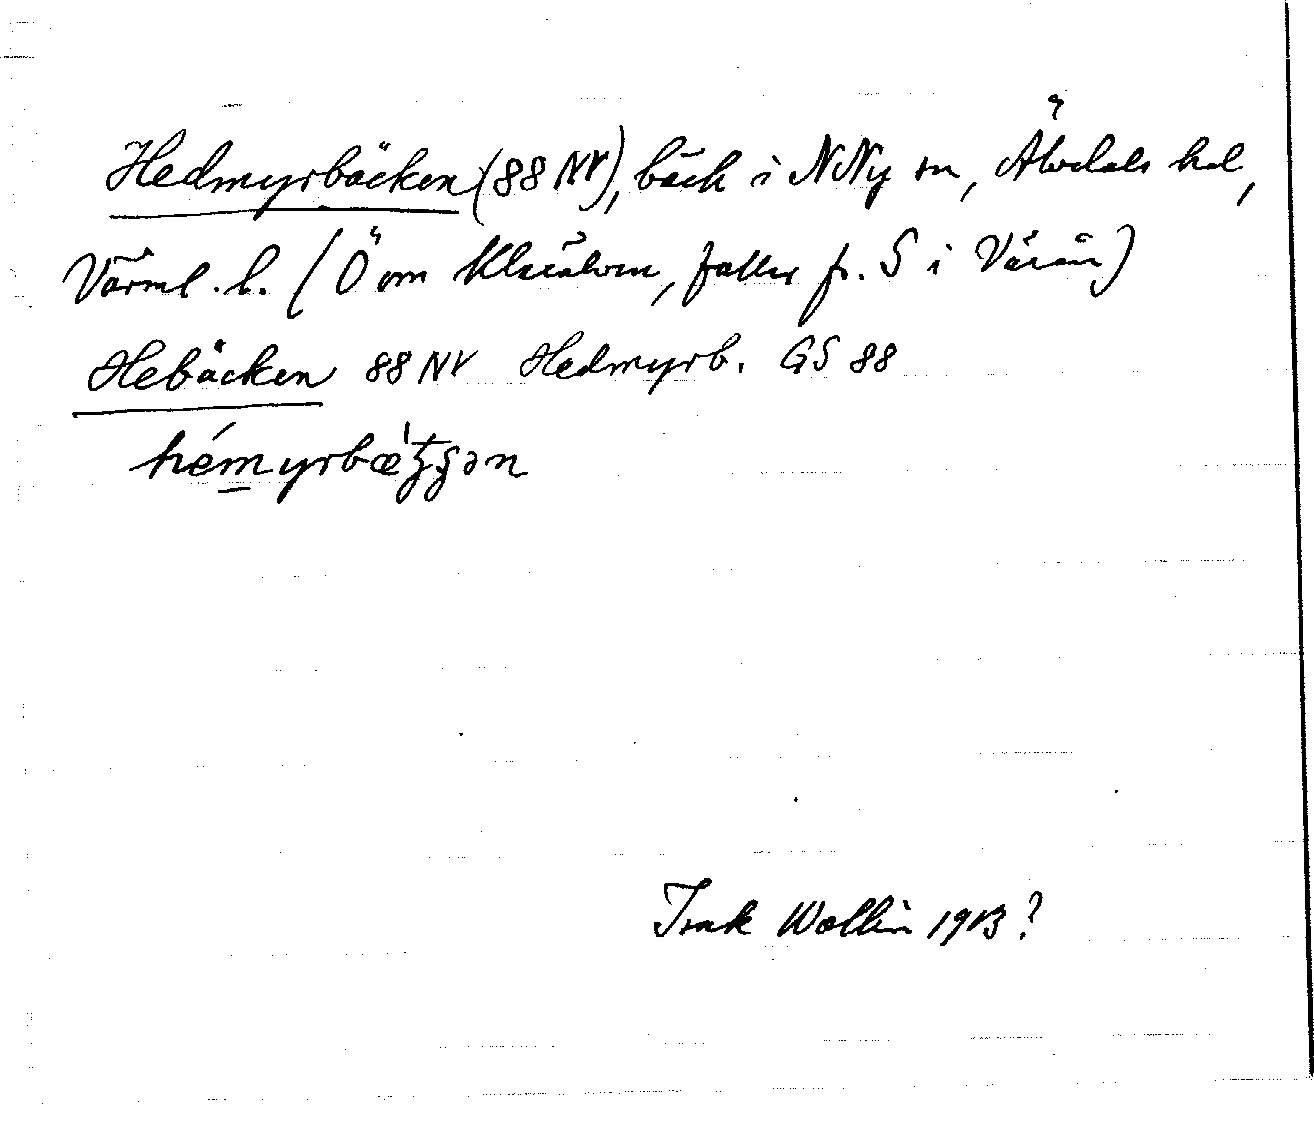 Hedmyrbäcken (88 NV), bäck i NNy sn, Älvdals hd,
Värml. l. (Ö om Klarälven, faller fr. S i Vårån)
Hebäcken 88 NV Hedmyrb. GS 88
Isak Wallin 1913?